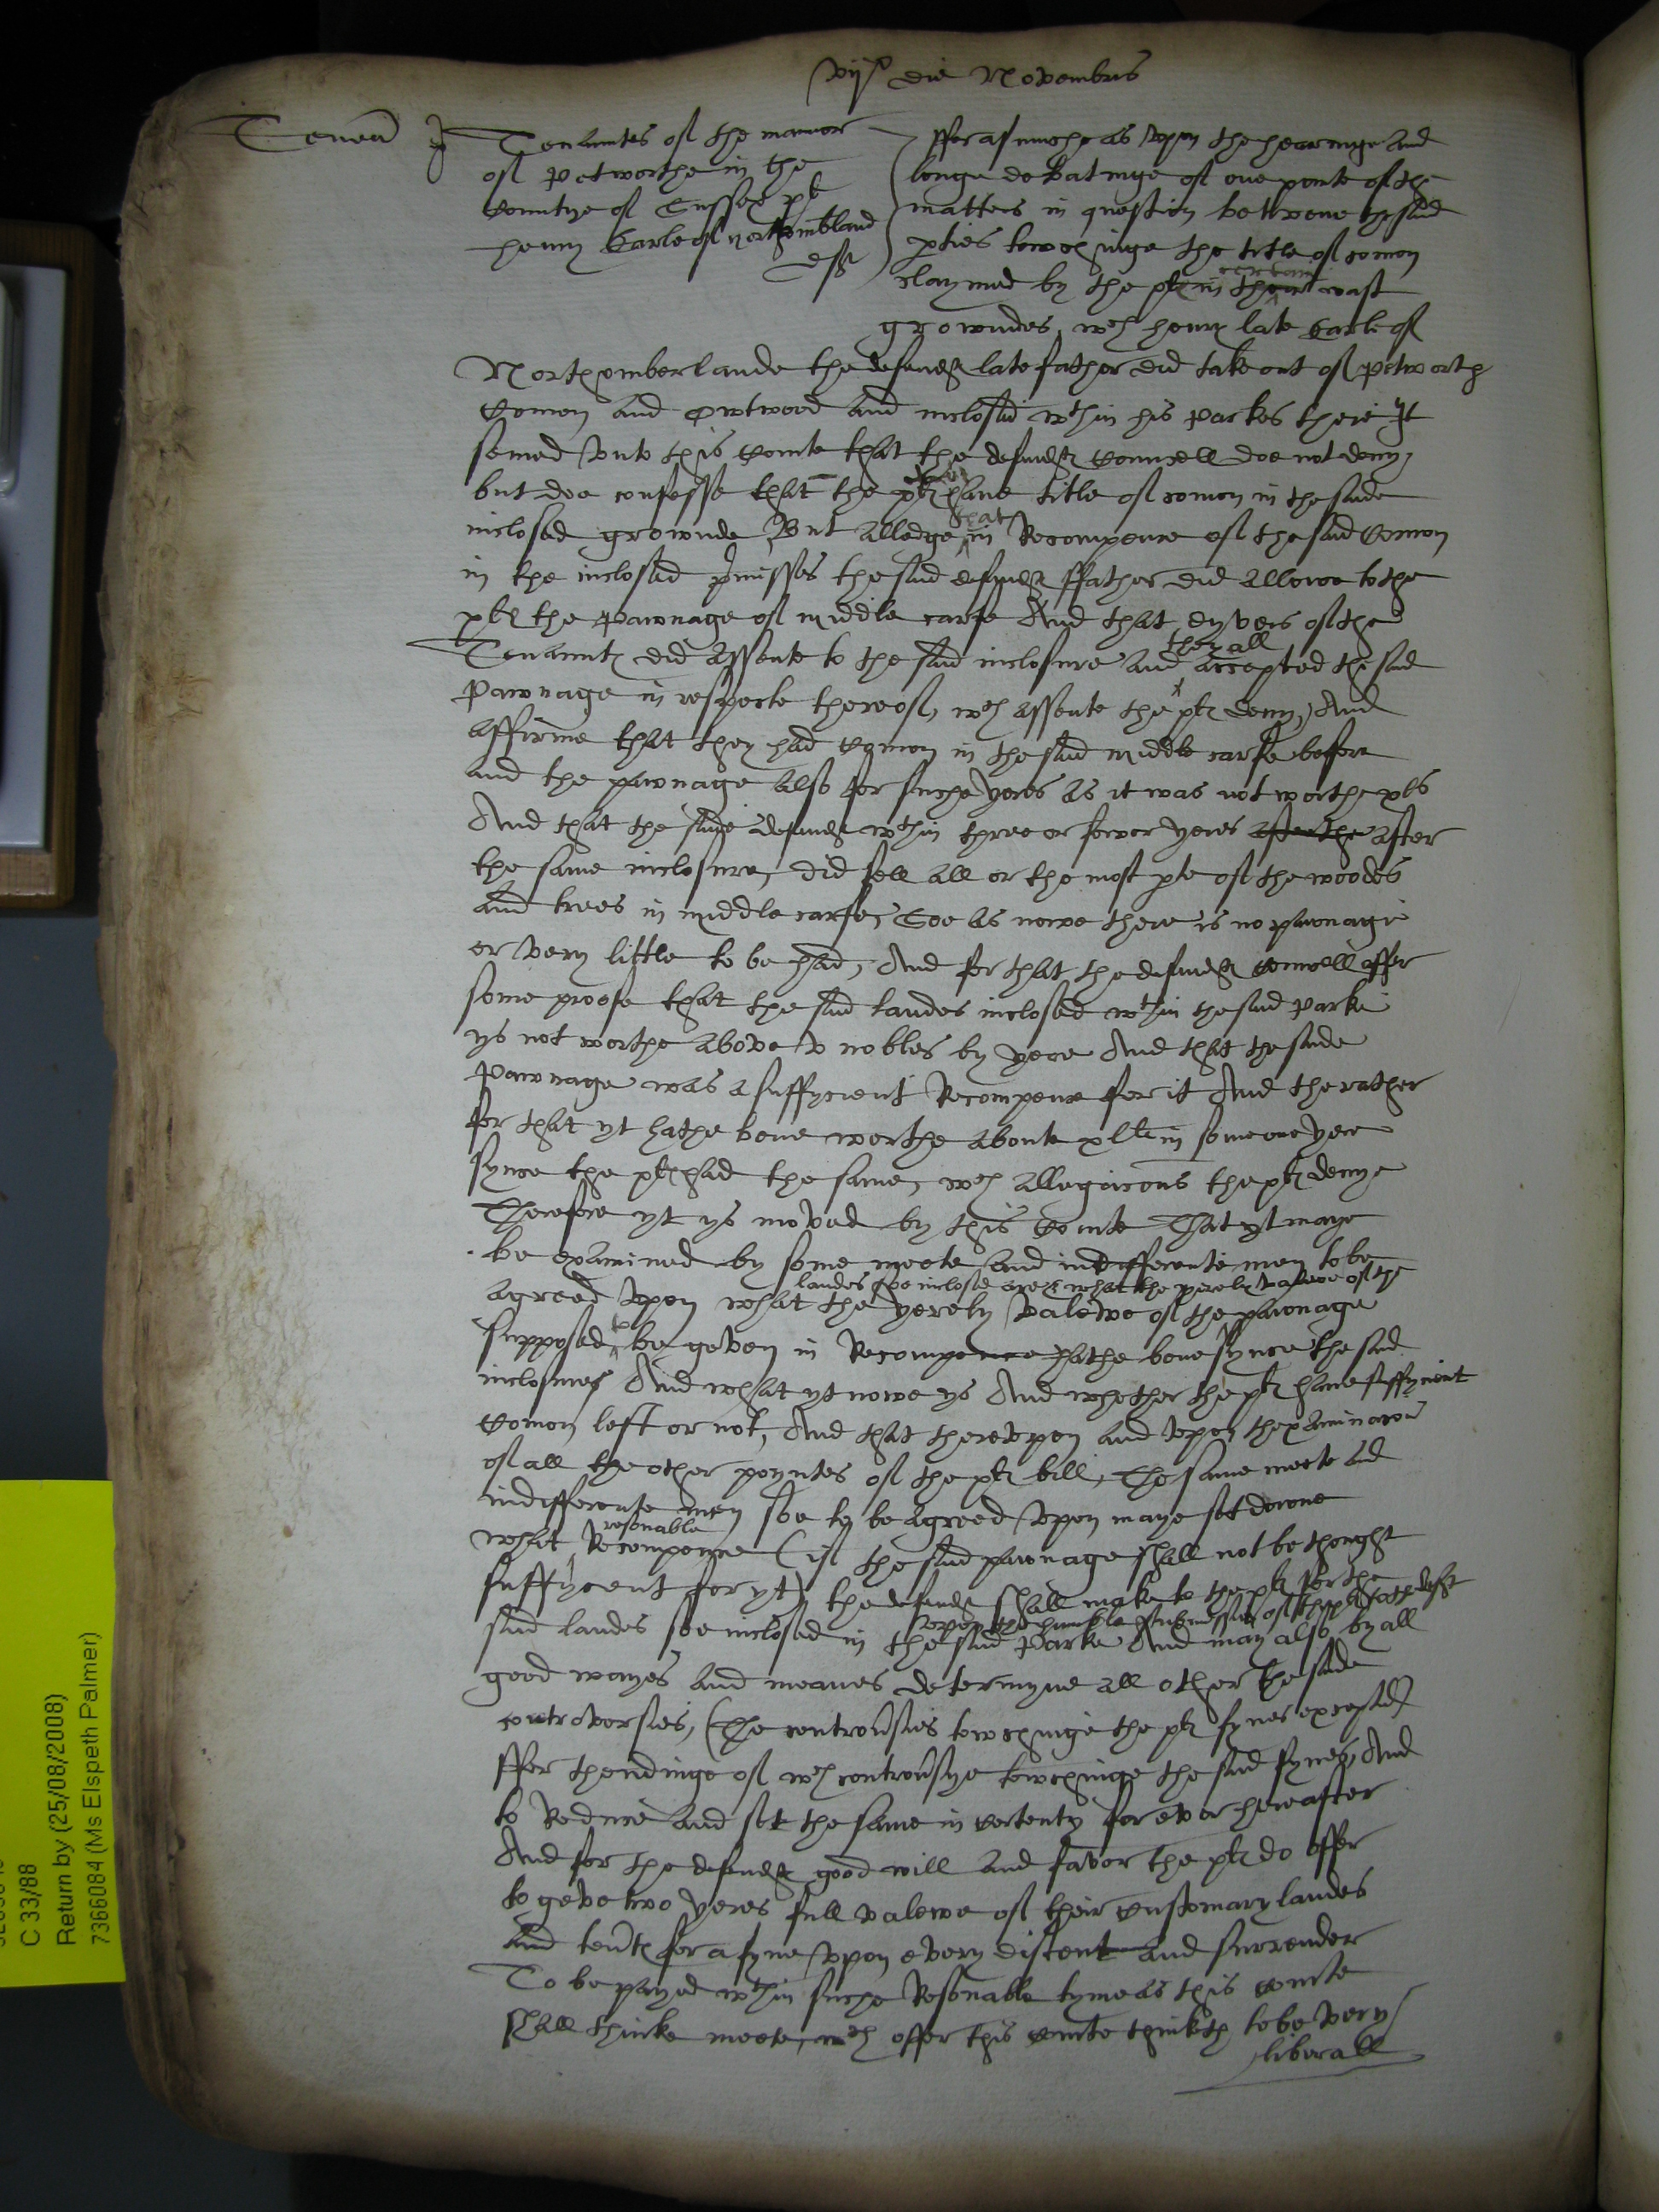 vijo die Novembris
Tenean
Tenauntes of the mannor
of Petworthe in the
Countye of Sussex plt
Henry Earle of Northumbland
deft
fforasmuche as upon the hearinge and
longe debatinge of one pointe of the
matters in question betwene the said
pties towchinge the title of comon
claymed by the plts in their certain wast
growndes wch Henry late Earle of
Northomberlande the defendts late father did take out of Petworth
Comon and Owtwood and inclosed wthin his Parkes there It
semed unto this Courte that the defendts Councell doe not deny
but doe confesse that the plts have title of comon in the saide
inclosed grownde, But alledge that in Recompence of the said Comon
in the inclosed pmisses the said defendts ffather did allowe to the
plts the Pawnage of middle carfe And that dyvers of the
Tenaunts did assente to the said inclosure and they all accepted the said
Pawnage in respecte thereof, wch assente the plts deny, And
affirme that they had Comon in the said middle carfe before
and the pawnage also for suche yeres as it was not worthe xls
And that the saide defendt wthin three or fower yeres after the after
the same inclosure, did sell all or the most pte of the woodes
and trees in middle carfe, Soe as nowe there is no pawnage
or very little to be had, And for that the defendts Councell offer
some proofe that the said landes inclosed wthin the said Parke
ys not worthe above v nobles by yere And that the saide
Pawnage was a suffycient Recompence for it And the rather
for that yt hathe bene worthe aboute xlli in some one yere
synce the plts had the same, wch allegacons the plts denye
Therefore yt ys moved by this Courte That yt maye
be examined by some meete and indifferente men to be
agreed upon what the landes soe inclosed are & what the yerely valewe of the
yerely valewe of the pawnage
supposed to be geven in Recompence hathe bene synce the said
inclosures And what yt nowe ys And whether the plts have suffycient
Comon left or not, And that thereupon and upon thexaminacon
of all the other poyntes of the plts bill, The same meete and
indifferente men soe to be agreed upon maye set downe
what resonable Recompence (if the said pawnage shall not be thought
suffycient for yt) the defendt shall make to the plts for the
said landes soe inclosed in the said Parke And may also by all
upon the humble submission of the plts to the deft
good wayes and meanes determyne all other the saide
controversies, (The controvsies towchinge the plts fynes excepted)
ffor thendinge of wch controvsye towchinge the said fynes, And
to Reduce and set the same in certenty for ever hereafter
And for the defendts good will and favor the plts do offer
to geve two yeres full valewe of their Customary landes
and tents for a fyne upon every discent and surrender
To be payed wthin suche Resonable tyme as this Courte
shall thinke meete, wch offer this Courte thinketh to be very
liberall
C 33/88
Return by (25/08/2008)
7366084 (Ms Elspeth Palmer)